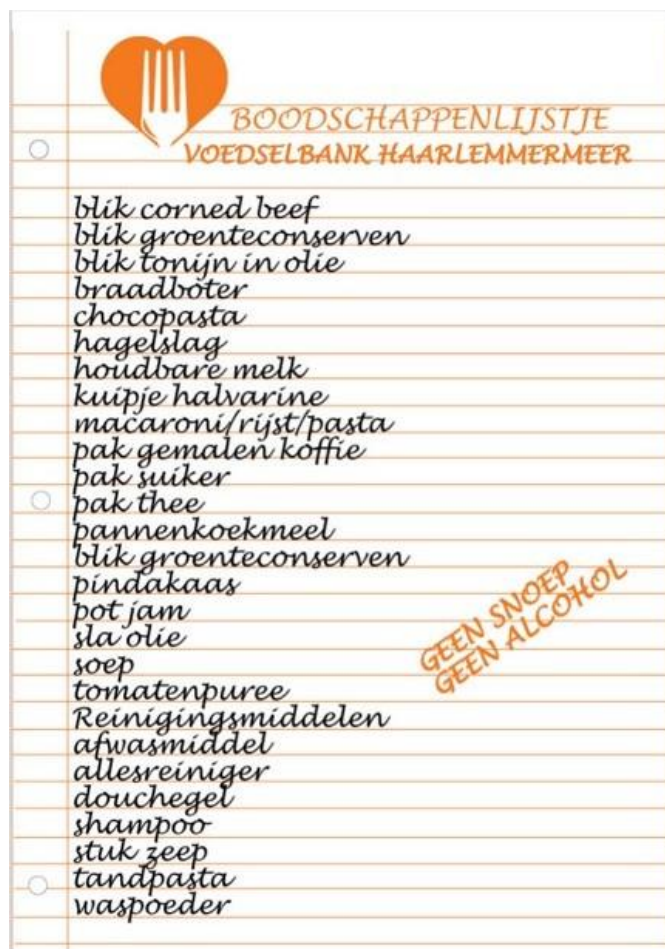 BOODSCHAPPENLIJSTJE
VOEDSELBANK HAARLEMMERMEER
blik corned beef
blik groenteconserven
blik tonijn in olie
braadboter
chocopasta
hagelslag
houdbare melk
kuipje halvarine
macaroni/rijst/pasta
pak gemalen koffie
pak suiker
pak thee
pannenkoekmeel
blik groenteconserven
pindakaas
pot jam
sla olie
soep
tomatenpuree
Reinigingsmiddelen
afwasmiddel
allesreiniger
douchegel
shampoo
stuk zeep
tandpasta
waspoeder
GEEN SNOEP
GEEN ALCOHOL